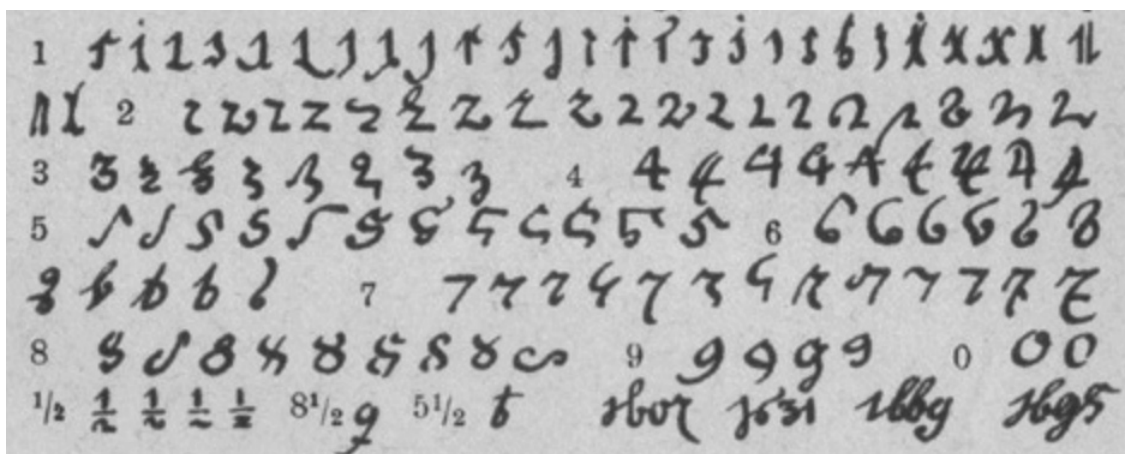 1 1 1 1 1 1 1 1 1 1 1 1 1 1 1 1 1 1 1 1 1 1 1 1 1 1 1
1 1 2 2 2 2 2 2 2 2 2 2 2 2 2 2 2 2 2 2 2 2
3 3 3 3 3 3 3 3 3 4 4 4 4 4 4 4 4 4 4
5 5 5 5 5 5 5 5 5 5 5 5 5 6 6 6 6 6 6 6
6 6 6 6 6 7 7 7 7 7 7 7 7 7 7 7 7 7 7
8 8 8 8 8 8 8 8 8 8 9 9 9 9 9 0 0 0
1/2 1/2 1/2 1/2 1/2 8 1/2 5 1/2 1607 1631 1669 1695